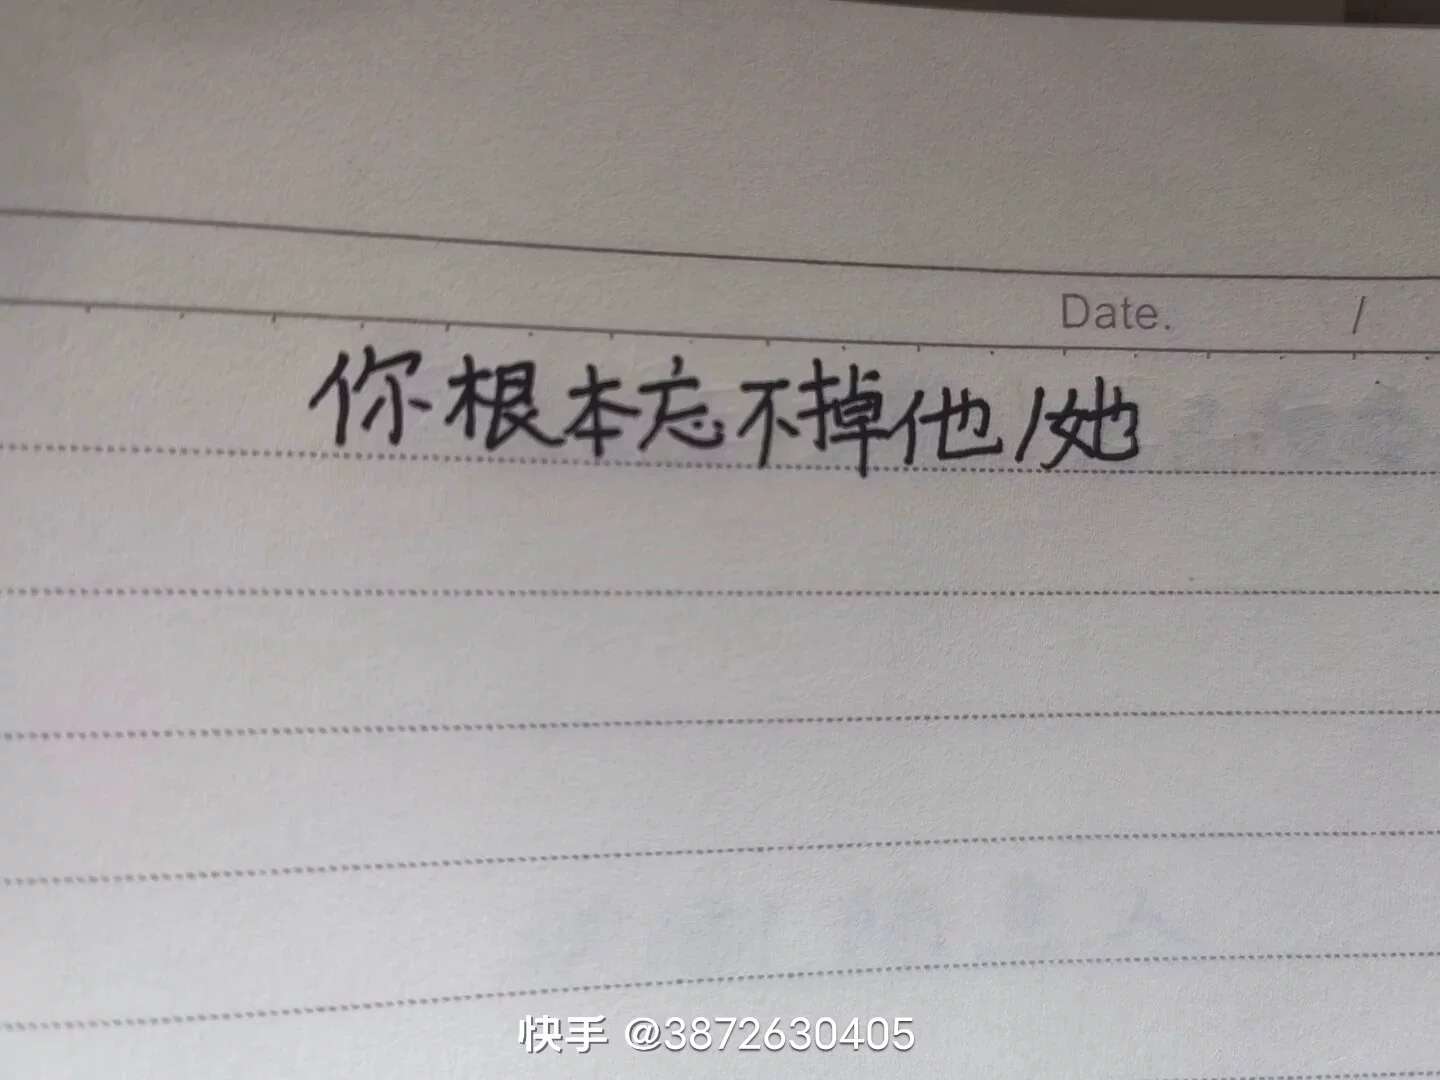 Date. /
你根本忘不掉他/她
快手 @3872630405